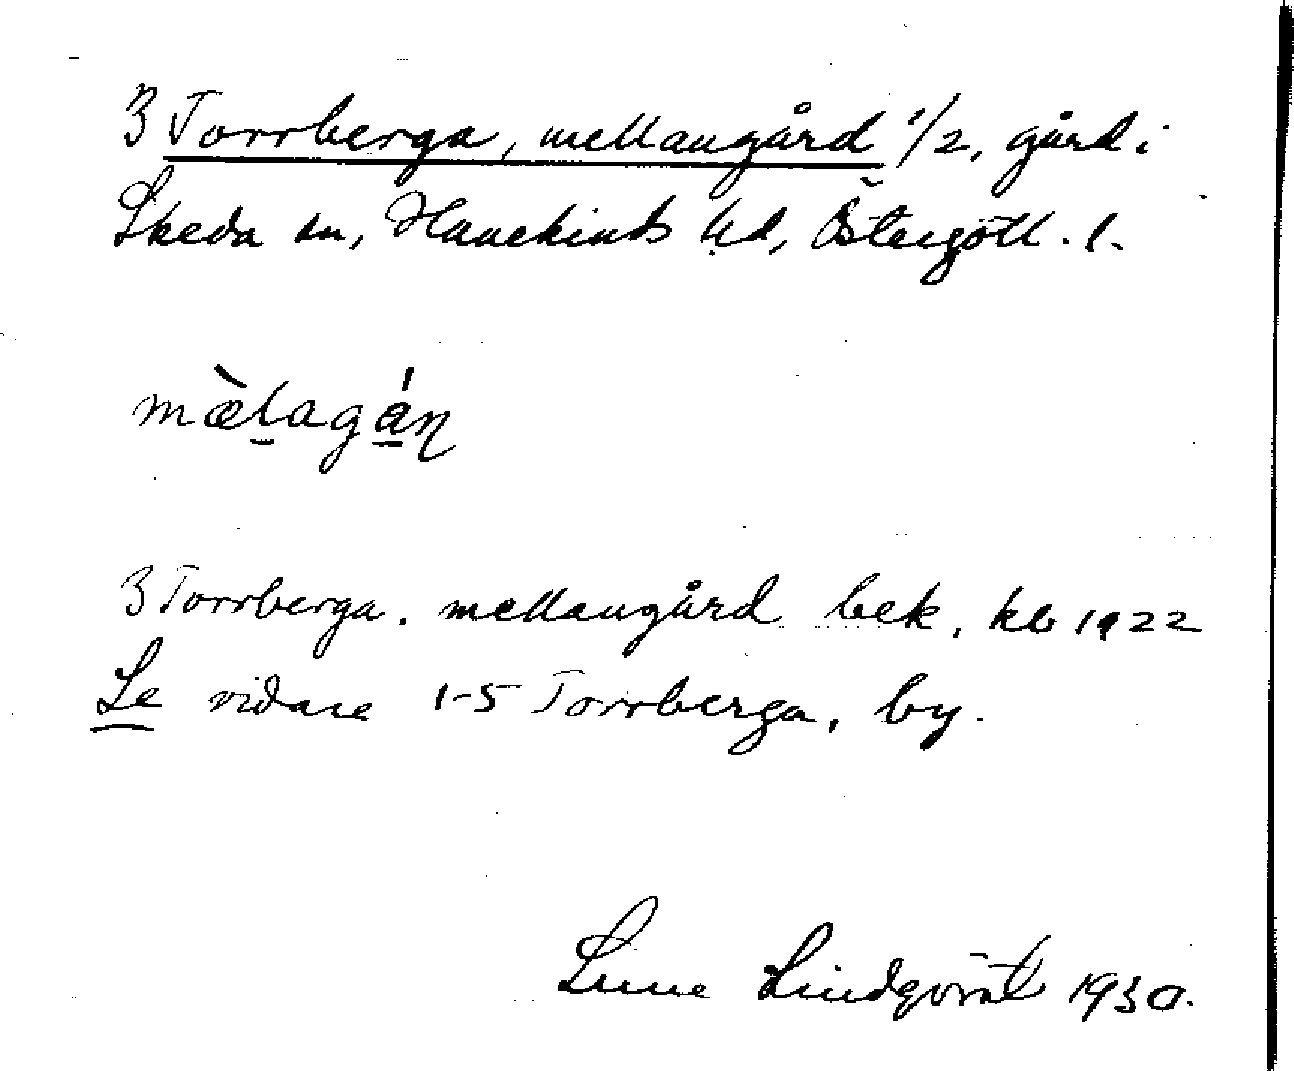 3 Torrberga, mellangård 1/2, gård i
Skeda sn, Hanekinds hd, Östergötl. l.
mæ̀lagán
3 Torrberga. mellangård bek. kb 1922
Se vidare 1-5 Torrberga, by.
Sune Lindqvist 1930.